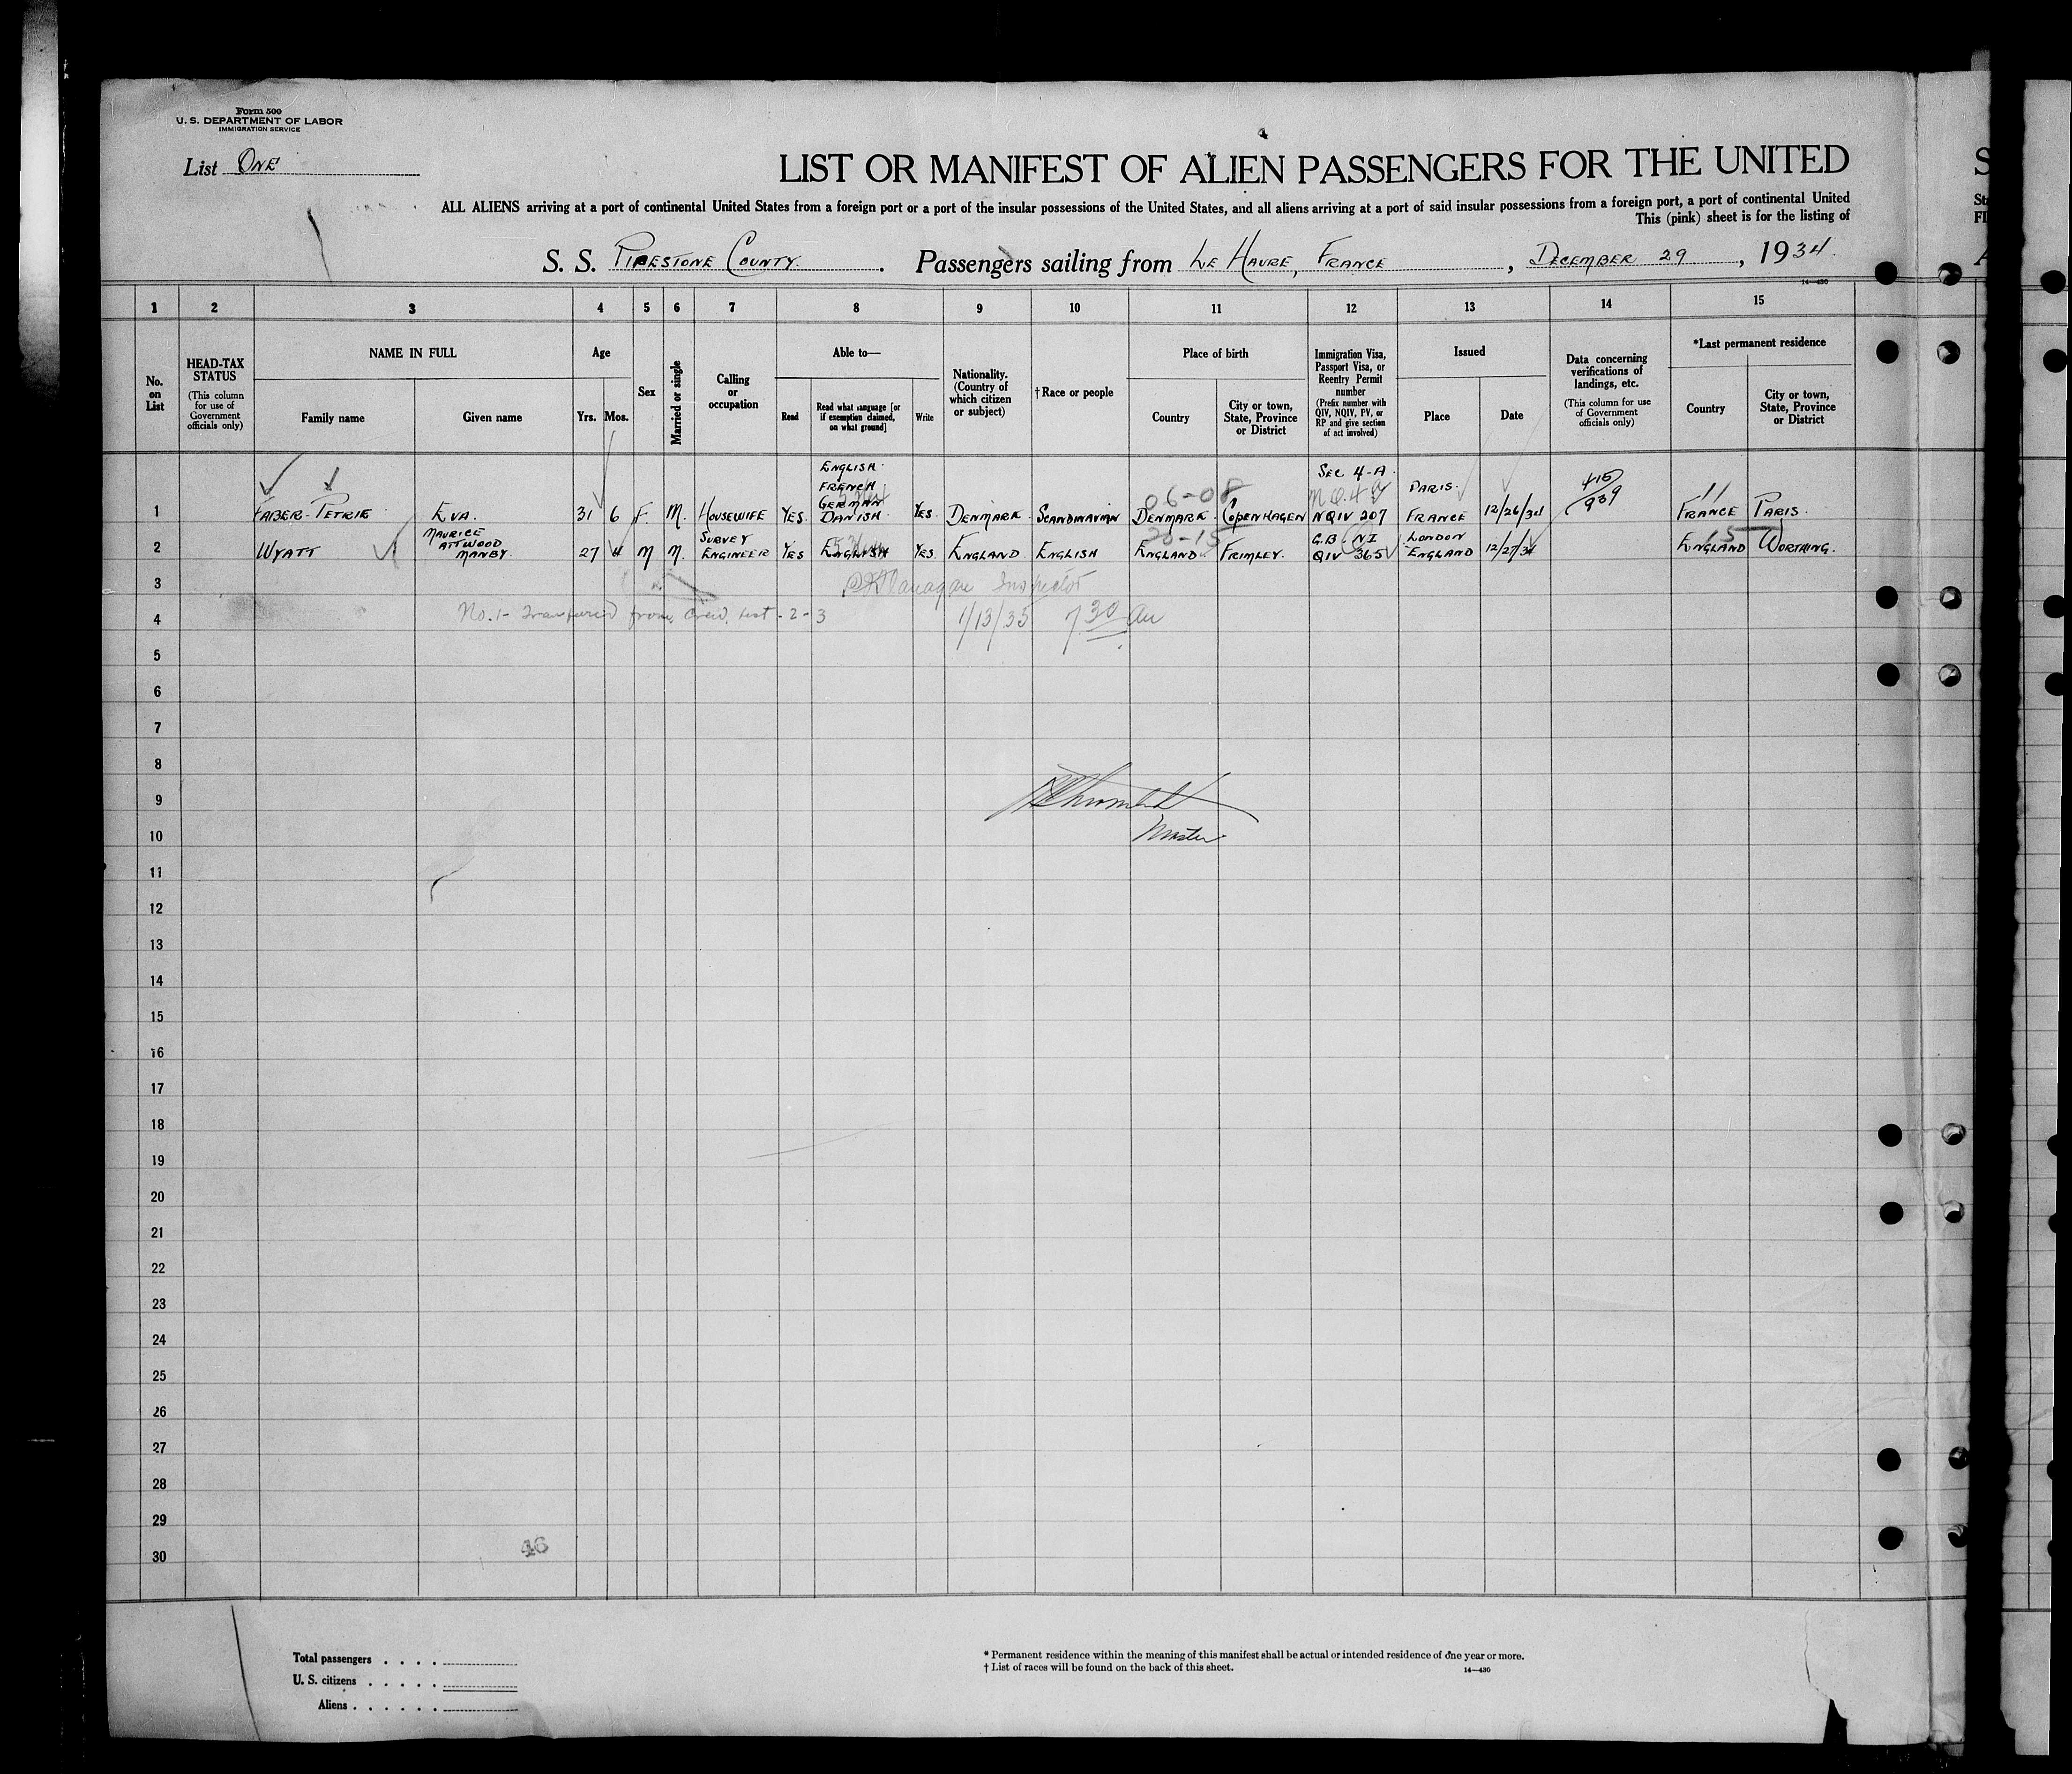 Form 500
U. S. DEPARTMENT OF LABOR
IMMIGRATION SERVICE
List ONE
LIST OR MANIFEST OF ALIEN PASSENGERS FOR THE UNITED
ALL ALIENS arriving at a port of continental United States from a foreign port or a port of the insular possessions of the United States, and all aliens arriving at a port of said insular possessions from a foreign port, a port of continental United
This (pink) sheet is for the listing of
S. S. PIPESTONE COUNTY. Passengers sailing from LE HAVRE, FRANCE, DECEMBER 29, 1934.
14—430
1 2 3 4 5 6 7 8 9 10 11 12 13 14 15
No. on List
HEAD-TAX STATUS (This column for use of Government officials only)
NAME IN FULL
Family name
Given name
Age
Yrs.
Mos.
Sex
Married or single
Calling or occupation
Able to—
Read
Read what language [or if exemption claimed, on what ground]
Write
Nationality. (Country of which citizen or subject)
† Race or people
Place of birth
Country
City or town, State, Province or District
Immigration Visa, Passport Visa, or Reentry Permit number (Prefix number with QIV, NQIV, PV, or RP and give section of act involved)
Issued
Place
Date
Data concerning verifications of landings, etc. (This column for use of Government officials only)
*Last permanent residence
Country
City or town, State, Province or District
1 FABER-PETRIE EVA. 31 6 F. M. HOUSEWIFE YES. ENGLISH FRENCH GERMAN DANISH YES. DENMARK SCANDINAVIAN 06-08 DENMARK COPENHAGEN SEC 4-A NQIV 207 PARIS. FRANCE 12/26/34 415/939 11 FRANCE PARIS.
2 WYATT MAURICE ATTWOOD MANBY. 27 4 M M. SURVEY ENGINEER YES ENGLISH YES. ENGLAND ENGLISH 20-15 ENGLAND FRIMLEY. G.B. NI QIV 365 LONDON ENGLAND 12/27/34 15 ENGLAND WORTHING.
3 Inspector
4 No. 1- Transfered from Crew List - 2 - 3 1/13/35 7 30 am
5
6
7
8
9
10 Master
11
12
13
14
15
16
17
18
19
20
21
22
23
24
25
26
27
28
29
30
46
Total passengers . . . .
U. S. citizens . . . . .
Aliens . . . . . .
* Permanent residence within the meaning of this manifest shall be actual or intended residence of one year or more.
† List of races will be found on the back of this sheet.
14—430